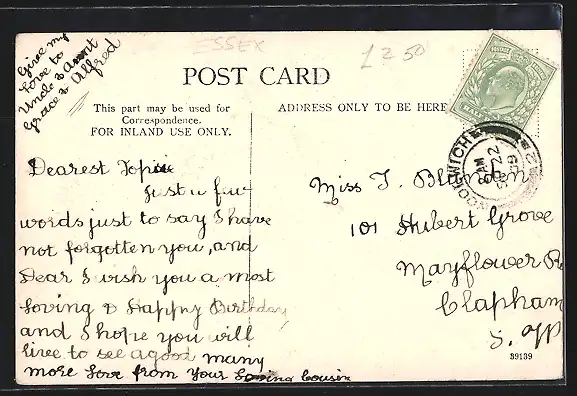 Give my
love to
Uncle & Aunt
Grace & Alfred
ESSEX
£2.50
POST CARD
This part may be used for
Correspondence.
FOR INLAND USE ONLY.
ADDRESS ONLY TO BE HERE
Dearest
Just a few
words just to say I have
not forgotten you, and
Dear I wish you a most
Loving & Happy Birthday
and I hope you will
live to see a good many
more love from your loving cousin
WOOLWICH
22
09
Miss J. Blundon
101 Hubert Grove
Mayflower R
Clapham
S. W
39139